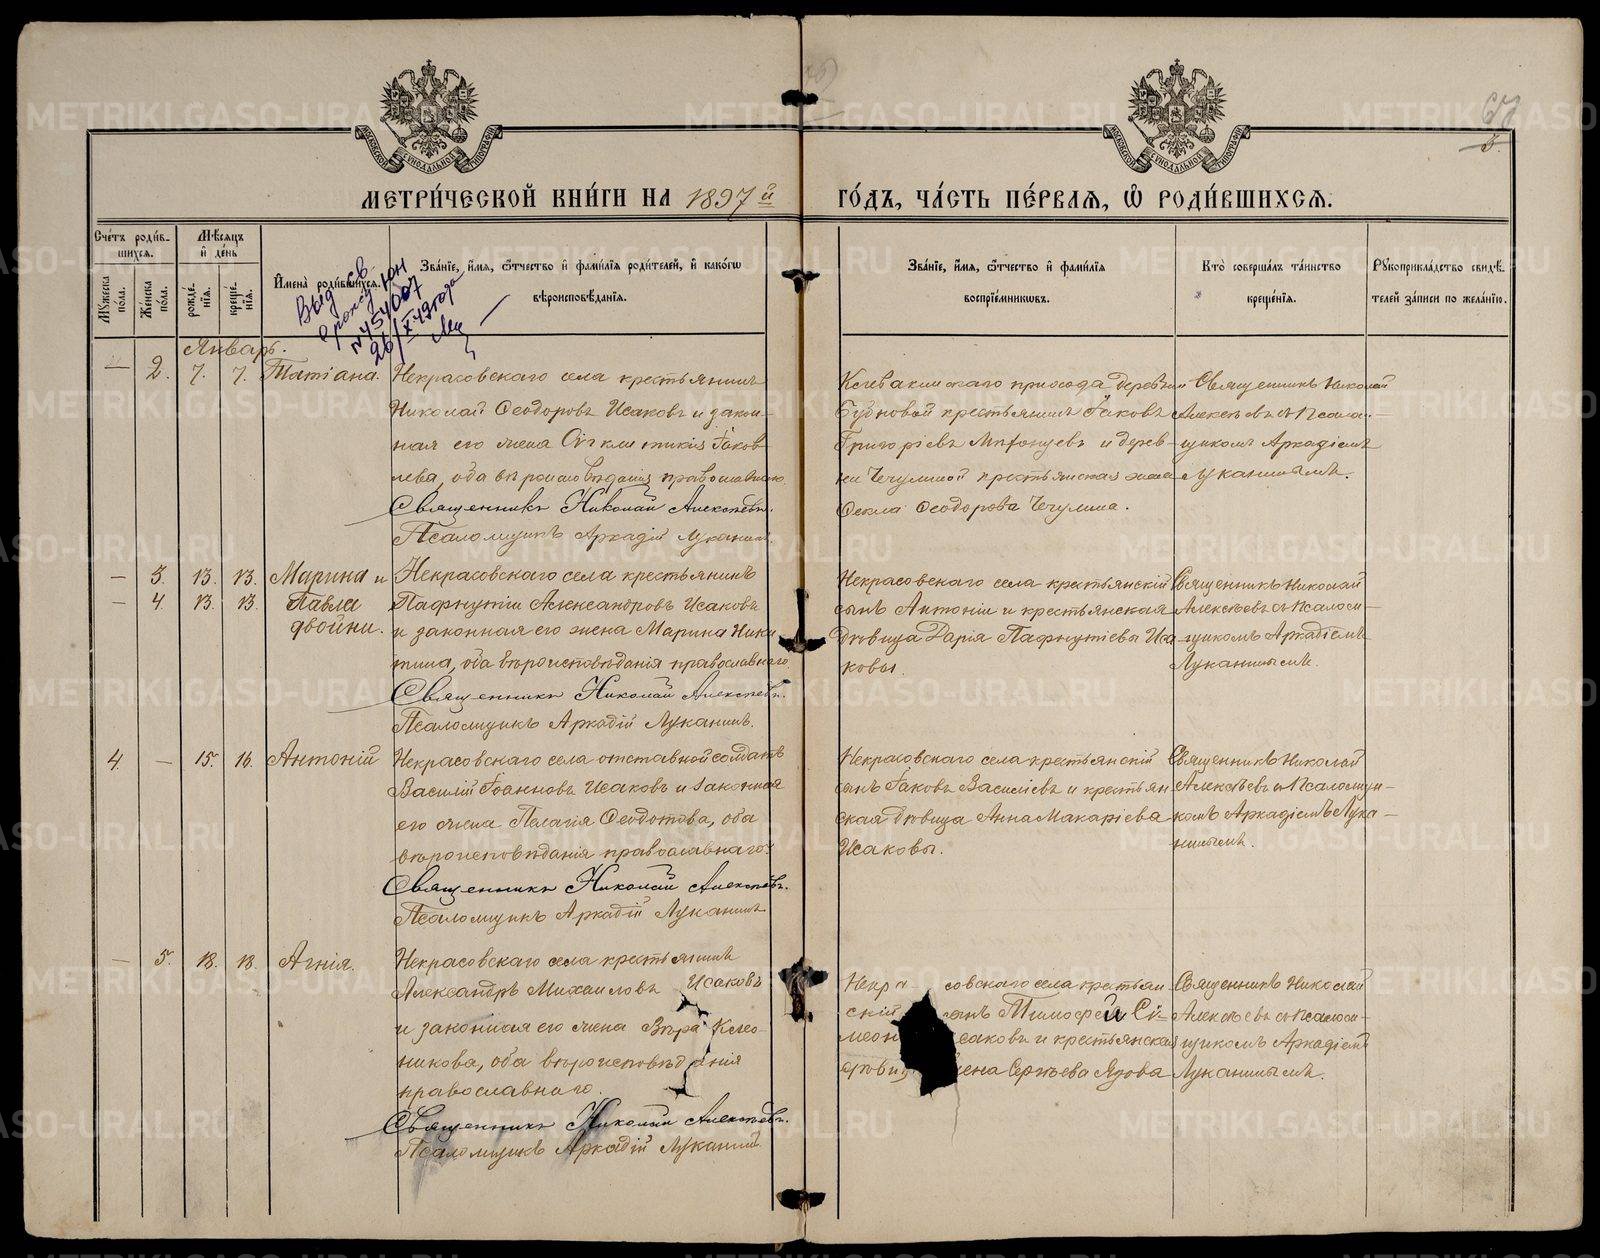 МЕТРИ́ЧЕСКОЙ КНИ́ГИ НА 1897й ГО́ДЪ, ЧА́СТЬ ПЕ́РВАЯ, Ѡ РОДИ́ВШИХСЯ.
Сче́тъ роди́в-
шихся.
Му́жеска по́ла.
Же́нска по́ла.
Мѣ́сяцъ
и́ де́нь
рожде́-
нїя.
креще́-
нїя.
И́мена̀ роди́вшихся.
Зва́нїе, и́мя, ѻ́тчество и́ фами́лїя роди́телей, и́ како́гѡ
вѣроисповѣ́данїя.
Зва́нїе, и́мя, ѻ́тчество и́ фами́лїя
воспрїе́мниковъ.
Кто̀ соверша́лъ та́инство
креще́нїя.
Рꙋкоприкла́дство свидѣ́-
телей за́писи по жела́нїю.
Январь.
— 2. 7. 7. Татіана.
Некрасовскаго села крестьянинъ
Николай Ѳеодоровъ Исаковъ и закон-
ная его жена Іаков-
лева, оба вѣроисповѣданія православнаго.
Священникъ Николай Алексѣевъ.
Псаломщикъ Аркадій Луканинъ.
Клевакинскаго прихода деревни
крестьянинъ Іаковъ
Григорієвъ и дерев-
ни Чечулиной крестьянская жена
Ѳекла Ѳеодорова Чечулина.
Священникъ Николай
Алексѣевъ съ псалом-
щикомъ Аркадіемъ
Луканинымъ.
— 3. 13. 13. Марина и
— 4. 13. 13. Павла
двойни.
Некрасовскаго села крестьянинъ
Пафнутій Александровъ Исаковъ
и законная его жена Марина Ники-
тина, оба вѣроисповѣданія православнаго.
Священникъ Николай Алексѣевъ.
Псаломщикъ Аркадій Луканинъ.
Некрасовскаго села крестьянскій
сынъ Антоній и крестьянская
дѣвица Дарія Пафнутіевы Иса-
ковы.
Священникъ Николай
Алексѣевъ съ псалом-
щикомъ Аркадіемъ
Луканинымъ.
4. — 15. 16. Антоній
Некрасовскаго села отставной солдатъ
Василій Іоанновъ Исаковъ и законная
его жена Пелагія Ѳеодотова, оба
вѣроисповѣданія православнаго.
Священникъ Николай Алексѣевъ.
Псаломщикъ Аркадій Луканинъ
Некрасовскаго села крестьянскій
сынъ Іаковъ Василіевъ и крестьян-
ская дѣвица Анна Макаріева
Исаковы.
Священникъ Николай
Алексѣевъ съ псаломщи-
комъ Аркадіемъ Лука-
нинымъ.
— 5. 18. 18. Агнія.
Некрасовскаго села крестьянинъ
Александръ Михаиловъ Исаковъ
и законная его жена Вѣра Клео-
никова, оба вѣроисповѣданія
православнаго.
Священникъ Николай Алексѣевъ.
Псаломщикъ Аркадій Луканинъ
Некра совскаго села крестьян
скій нъ Тимофей Си-
меон саковъ и крестьянская
дѣвиц лена Сергѣева Язова
Священникъ Николай
Алексѣевъ съ псалом-
щикомъ Аркадіемъ
Луканинымъ.
METRIKI.GASO-URAL.RU